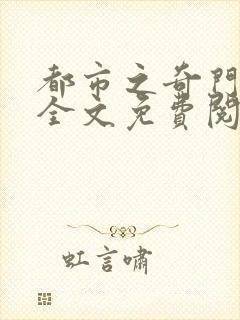 都市之奇門
全文免費閱
虹言嘯